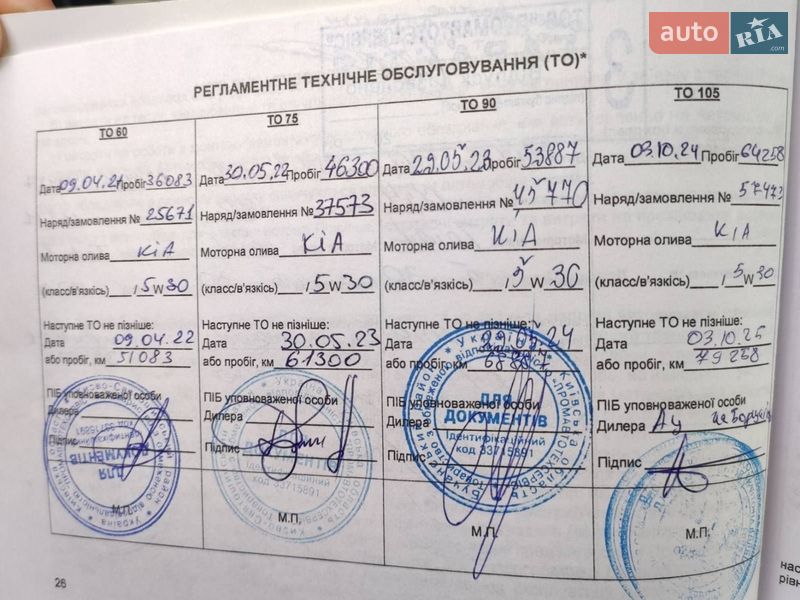 auto RIA .com
РЕГЛАМЕНТНЕ ТЕХНІЧНЕ ОБСЛУГОВУВАННЯ (ТО)*
ТО 60
Дата 09.04.21 Пробіг 36083
Наряд/замовлення № 25671
Моторна олива КІА
(класс/в'язкість) / 5W30
Наступне ТО не пізніше:
Дата 09.04.22
або пробіг, км 51083
ПІБ уповноваженої особи
Дилера
Підпис
М.П.
ТО 75
Дата 30.05.22 Пробіг 46300
Наряд/замовлення № 37573
Моторна олива КІА
(класс/в'язкість) / 5W30
Наступне ТО не пізніше:
Дата 30.05.23
або пробіг, км 61300
ПІБ уповноваженої особи
Дилера
Підпис
М.П.
ТО 90
Дата 29.05.23 Пробіг 53887
Наряд/замовлення № 45770
Моторна олива КІА
(класс/в'язкість) / 5W30
Наступне ТО не пізніше:
Дата 29.05.24
або пробіг, км 68887
ПІБ уповноваженої особи
Дилера
ДЛЯ
ДОКУМЕНТІВ
Ідентифікаційний
код 33715891
Підпис
М.П.
ТО 105
Дата 03.10.24 Пробіг 64258
Наряд/замовлення № 57473
Моторна олива КІА
(класс/в'язкість) / 5W30
Наступне ТО не пізніше:
Дата 03.10.25
або пробіг, км 79258
ПІБ уповноваженої особи
Дилера
Підпис
М.П.
26
нас
рівн